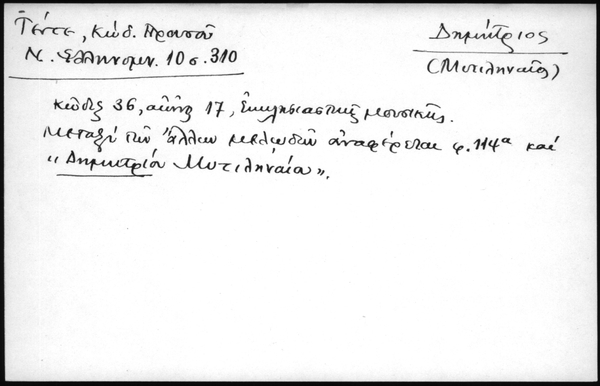 Τέντε, Κώδ. Προυσοῦ
Ν. Ἑλληνομν. 10 σ. 310
Δημήτριος
(Μυτιληναῖος)
Κῶδιξ 36, αἰῶν 17, Ἐκκλησιαστικῆς μουσικῆς.
Μεταξὺ τῶν ἄλλων μελωδῶν ἀναφέρεται φ. 114α καὶ
"Δημητρίου Μυτιληναίου".